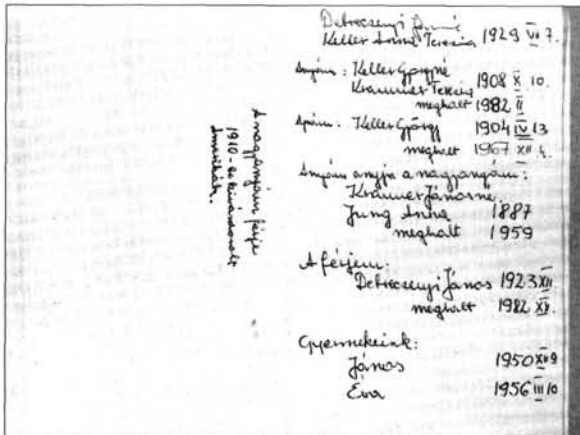 Debreczenyi Jánosné
Keller Anna Terézia 1929 VI 7.
Anyám: Keller Györgyné
Krammer Terézia 1908 X. 10.
meghalt 1982 II
Apám: Keller György 1904 IV 13
meghalt 1967 XII 4.
Anyám anyja a nagyanyám:
Krammer Jánosné.
Jung Anna 1887
meghalt 1959
A férjem:
Debreczenyi János 1923 XII
meghalt 1982 XI.
Gyermekeink:
János 1950 XII 9
Éva 1956 III 10
A nagyanyám férje
1910-es kivándorolt
Amerikába.